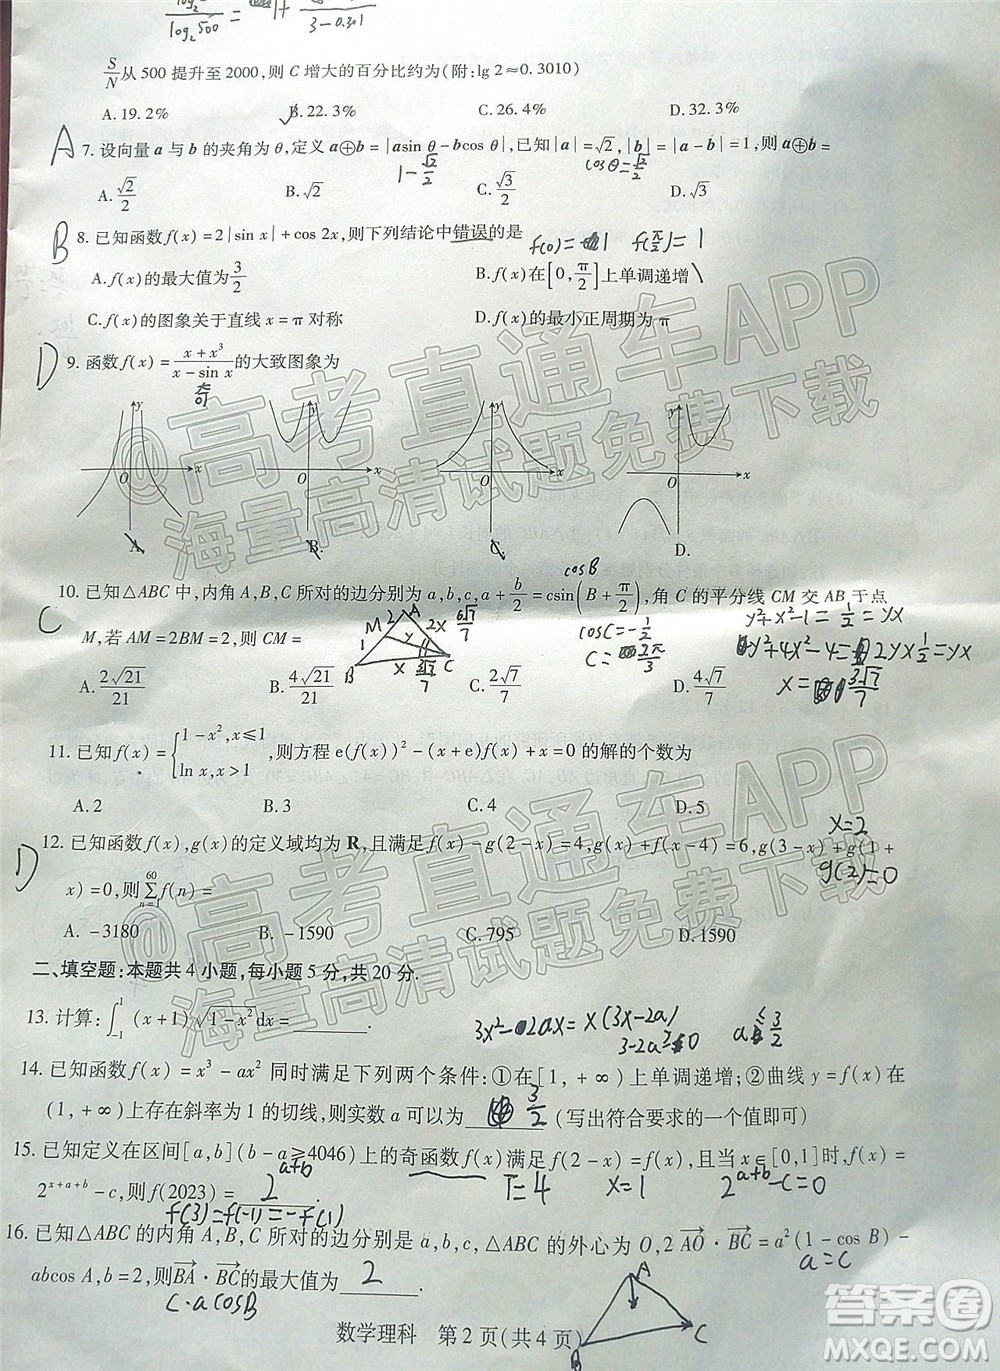 log₂
log₂500
=
3-0.301
S/N从500提升至2000,则C增大的百分比约为(附:lg 2≈0.3010)
A.19.2% B.22.3% C.26.4% D.32.3%
A 7.设向量a与b的夹角为θ,定义a⊕b=|asin θ-bcos θ|,已知|a|=√2,|b|=|a-b|=1,则a⊕b=
1-√2/2 cosθ=√2/2
A.√2/2 B.√2 C.√3/2 D.√3
B 8.已知函数f(x)=2|sin x|+cos 2x,则下列结论中错误的是 f(0)=1 f(π/2)=1
A.f(x)的最大值为3/2 B.f(x)在[0,π/2]上单调递增
C.f(x)的图象关于直线x=π对称 D.f(x)的最小正周期为π
D 9.函数f(x)=(x+x³)/(x-sin x)的大致图象为
奇
y y y y
O x O x O x O x
A. B. C. D.
cosB
10.已知△ABC中,内角A,B,C所对的边分别为a,b,c,a+b/2=csin(B+π/2),角C的平分线CM交AB于点
C M,若AM=2BM=2,则CM=
A M 2 2x 6√7/7 1 y B x C 3√7/7
cosC=-1/2
C=2π/3
y²+x²-1=1/2=yx
y²+4x²-4=2yx1/2=yx
x=3√7/7
A.2√21/21 B.4√21/21 C.2√7/7 D.4√7/7
11.已知f(x)={1-x²,x≤1 ln x,x>1,则方程e(f(x))²-(x+e)f(x)+x=0的解的个数为
A.2 B.3 C.4 D.5
x=2
D 12.已知函数f(x),g(x)的定义域均为R,且满足f(x)-g(2-x)=4,g(x)+f(x-4)=6,g(3-x)+g(1+
x)=0,则∑f(n)= 60 n=1
g(2)=0
A. -3180 B. -1590 C.795 D.1590
二、填空题:本题共4小题,每小题5分,共20分.
13.计算:∫₋₁¹(x+1)√(1-x²)dx=________.
3x²-2ax=x(3x-2a)
3-2a≥0
a≤3/2
14.已知函数f(x)=x³-ax²同时满足下列两个条件:①在[1,+∞)上单调递增;②曲线y=f(x)在
(1,+∞)上存在斜率为1的切线,则实数a可以为 3/2 (写出符合要求的一个值即可)
15.已知定义在区间[a,b](b-a≥4046)上的奇函数f(x)满足f(2-x)=f(x),且当x∈[0,1]时,f(x)=
a+b
2^(x+a+b)-c,则f(2023)= 2 T=4 x=1 2^(a+b)-c=0
f(3)=f(-1)=-f(1)
16.已知△ABC的内角A,B,C所对的边分别是a,b,c,△ABC的外心为O,2AO·BC=a²(1-cos B)-
abcos A,b=2,则BA·BC的最大值为 2
a=c
c·acosB
A B C
数学理科 第2页(共4页)
@高考直通车APP
海量高清试题免费下载
@高考直通车APP
海量高清试题免费下载
答案圈
MXQE.COM